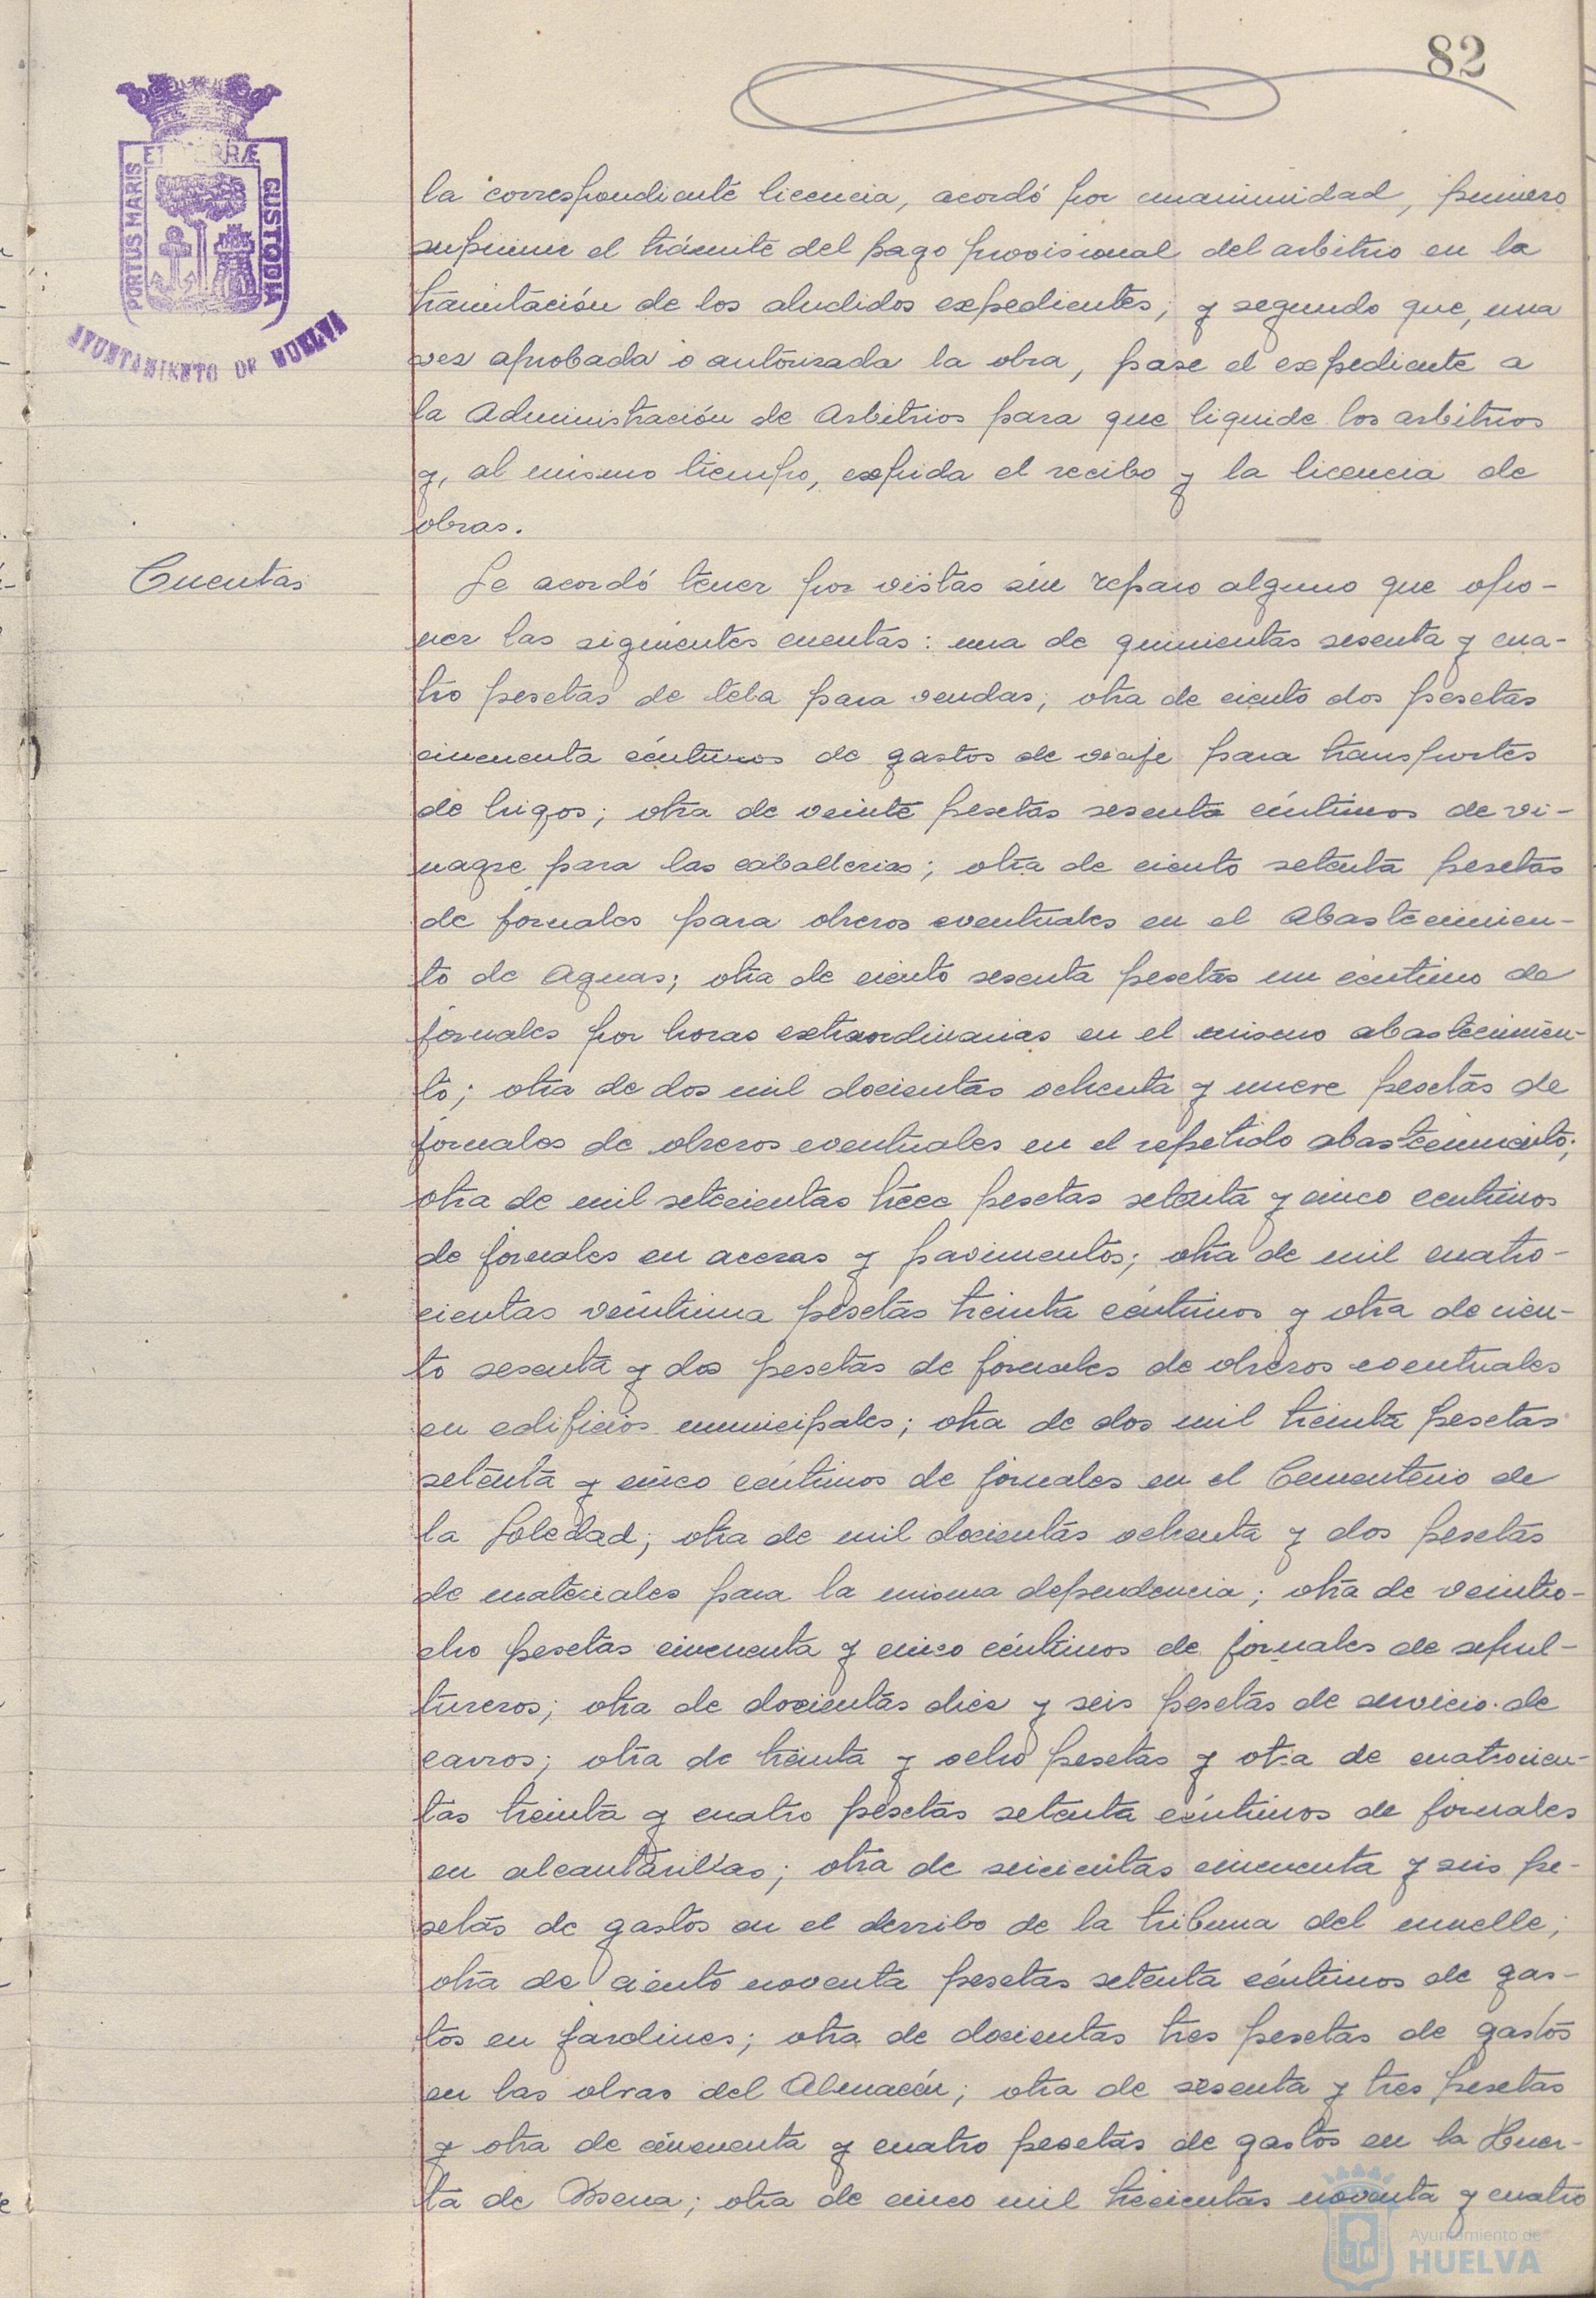 82
ET TERRÆ
PORTUS MARIS
CUSTODIA
AYUNTAMIENTO DE HUELVA
la correspondiente licencia, acordó por unanimidad, primero
suprimir el trámite del pago provisional del arbitrio en la
tramitación de los aludidos expedientes; y segundo que, una
vez aprobada o autorizada la obra, pase el expediente a
la Administración de Arbitrios para que liquide los arbitrios
y, al mismo tiempo, expida el recibo y la licencia de
obras.
Cuentas
Se acordó tener por vistas sin reparo alguno que opo-
ner las siguientes cuentas: una de quinientas sesenta y cua-
tro pesetas de tela para vendas; otra de ciento dos pesetas
cincuenta céntimos de gastos de viaje para transportes
de higos; otra de veinte pesetas sesenta céntimos de vi-
nagre para las caballerias; otra de ciento setenta pesetas
de jornales para obreros eventuales en el Abastecimien-
to de Aguas; otra de ciento sesenta pesetas un céntimo de
jornales por horas extraordinarias en el mismo abastecimien-
to; otra de dos mil docientas ochenta y nueve pesetas de
jornales de obreros eventuales en el repetido abastecimiento;
otra de mil setecientas trece pesetas setenta y cinco centimos
de jornales en aceras y pavimentos; otra de mil cuatro-
cientas veintiuna pesetas treinta céntimos y otra de cien-
to sesenta y dos pesetas de jornales de obreros eventuales
en edificios municipales; otra de dos mil treinta pesetas
setenta y cinco céntimos de jornales en el Cementerio de
la Soledad; otra de mil docientas ochenta y dos pesetas
de materiales para la misma dependencia; otra de veintio-
cho pesetas cincuenta y cinco céntimos de jornales de sepul-
tureros; otra de docientas diez y seis pesetas de servicio de
carros; otra de treinta y ocho pesetas y otra de cuatrocien-
tas treinta y cuatro pesetas setenta céntimos de jornales
en alcantarillas; otra de seicientas cincuenta y seis pe-
setas de gastos en el derribo de la tribuna del muelle;
otra de ciento noventa pesetas setenta céntimos de gas-
tos en jardines; otra de docientas tres pesetas de gastos
en las obras del Almacén; otra de sesenta y tres pesetas
y otra de cincuenta y cuatro pesetas de gastos en la Huer-
ta de Mena; otra de cinco mil trecientas noventa y cuatro
Ayuntamiento de
HUELVA